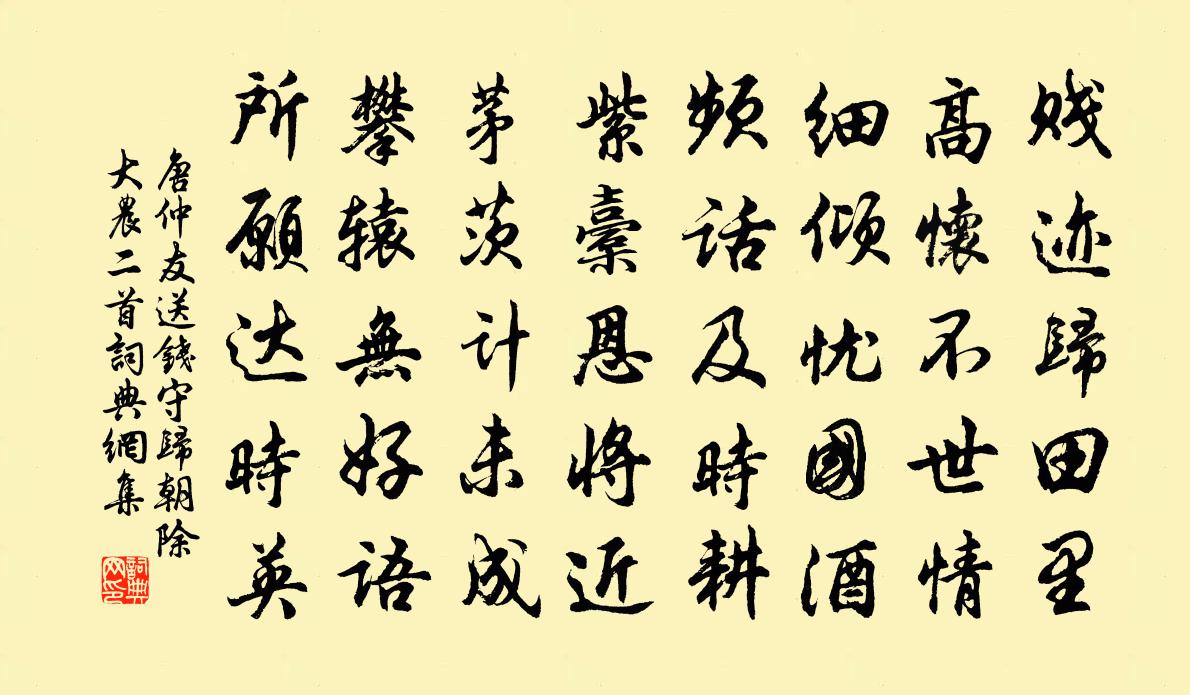 贱迹歸田里
高懷不世情
细倾忧國酒
频话及時耕
紫橐恩将近
茅茨计未成
攀辕無好语
所願达時英
唐仲友送錢守歸朝除
大農二首詞典網集
詞典
网印